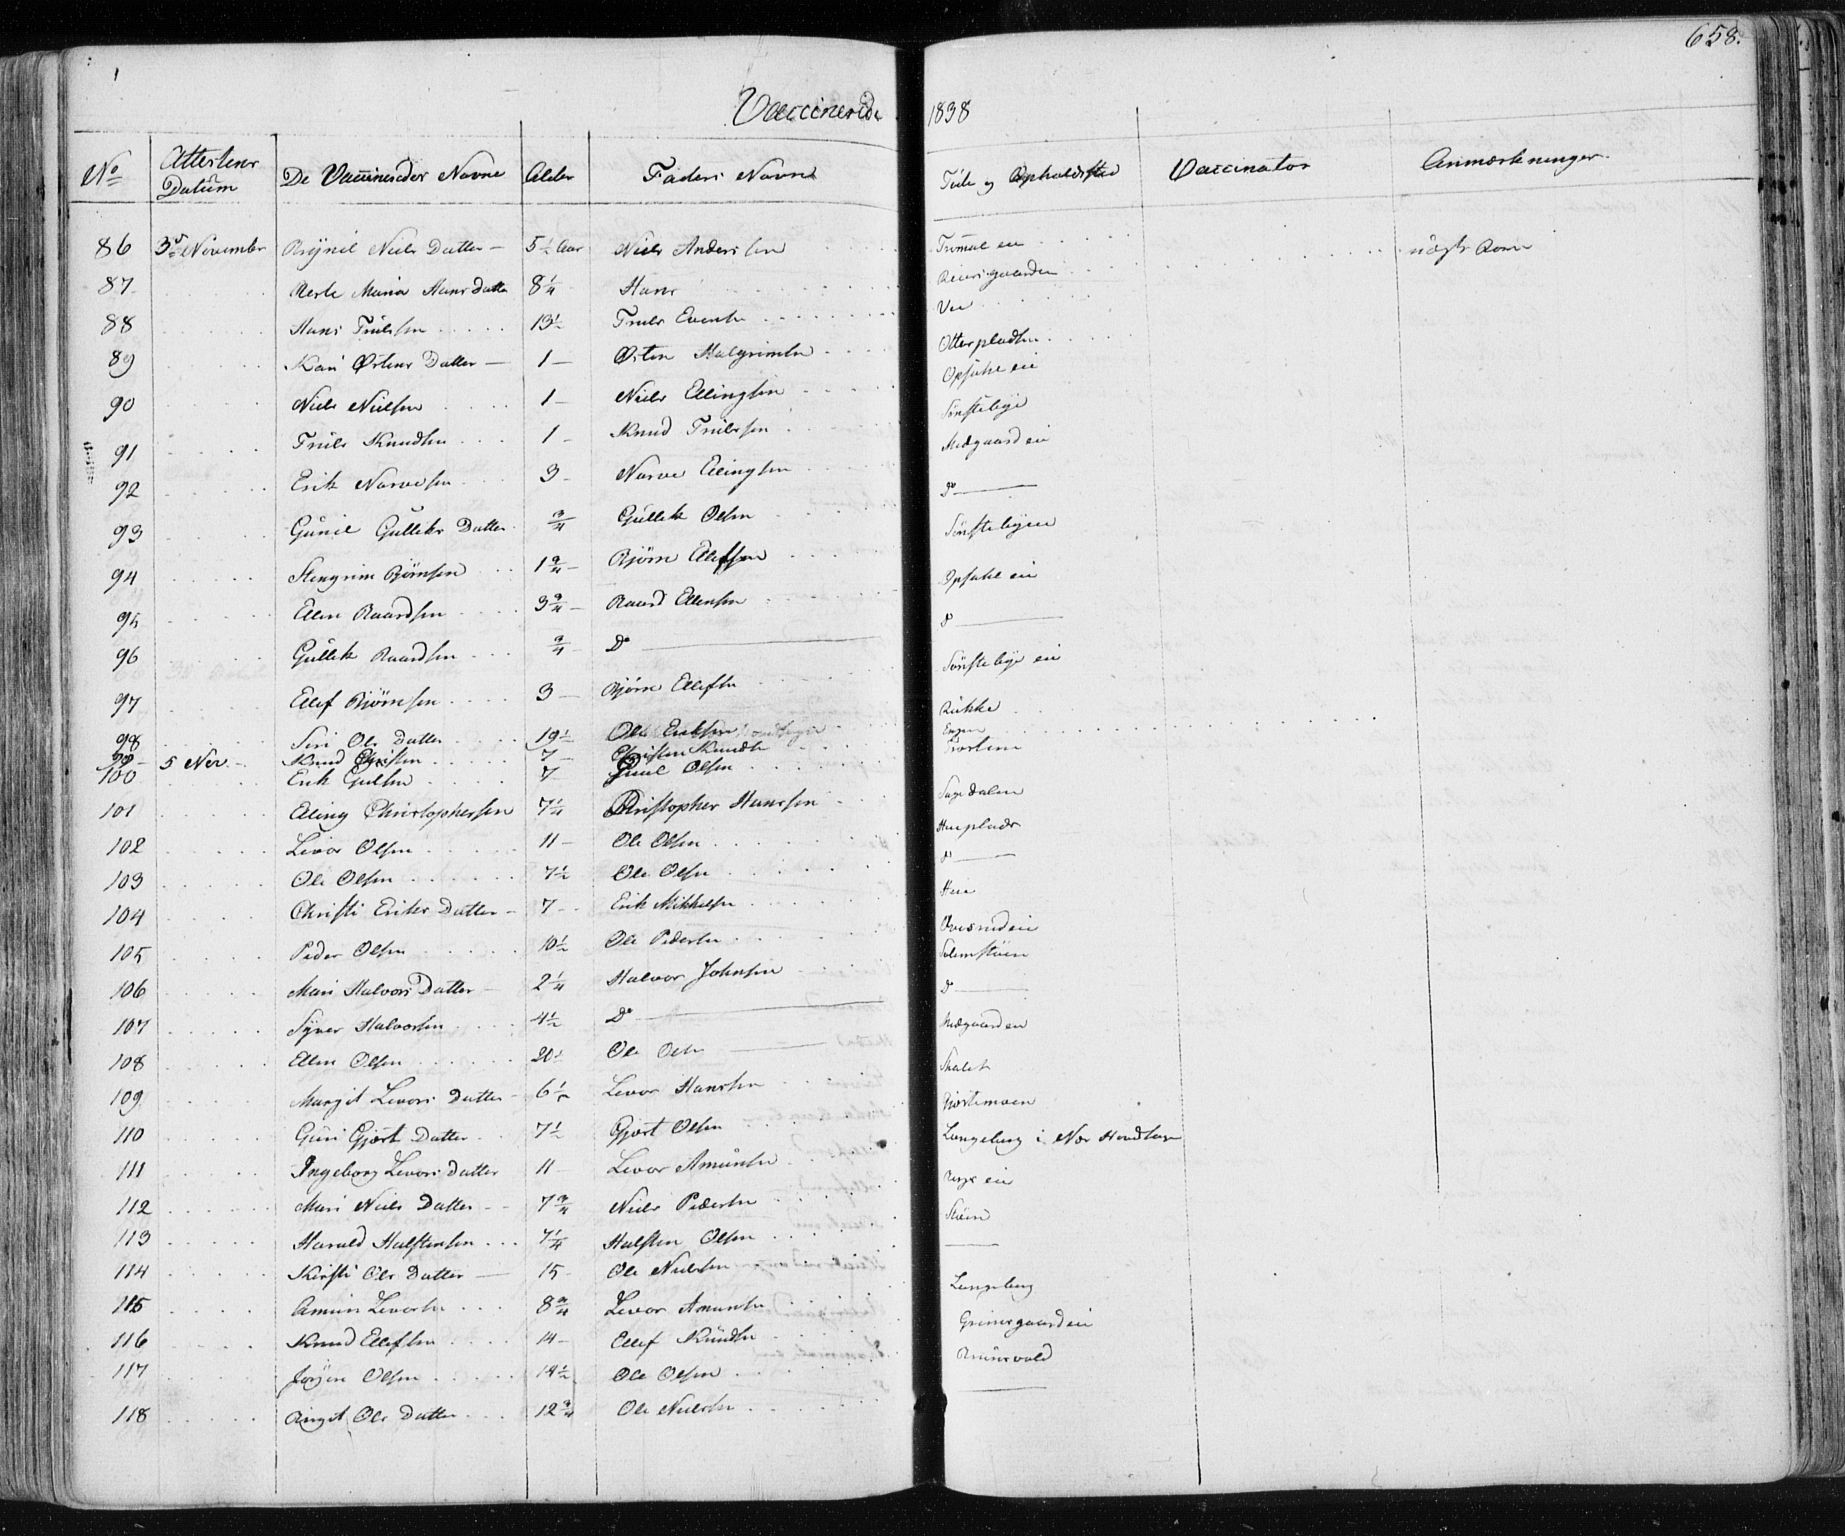 658.
Vaccinerede 1838
No Attestens Datum De Vaccinereder Navne Alder Faders Navne Føde og Opholdssted Vaccinator Anmærkninger.
86 3d November Niels Datter — 5 1/2 Aar Niels Andersen Trommal eie
87 Maria Hans datter 8 1/4 Hans Reiersgaarden
88 Hans Truelsen 13 1/2 Truls Evense
89 Kari Østens Datter — 1 — Østen Halgrimsen
90 Niels Nielsen 1 — Niels Ellingsen Opsahl eie
91 Truls Knudsen 1 — Knud Trulssen Sønstebye
92 Erik Narvesen 3 — Narve Ellingsen Medgaard eie
93 Gunil Gulleks Datter 3/4 Gullek Olsen Do
94 Stengrim Bjørnsen 1 3/4 — Bjørn Ellefsen Sønstebyeie
95 Ellen Baardsen 3 3/4 — Baard Ellensen Opsahl eie
96 Gullek Baardsen 3/4 — Do Do
97 Ellef Bjørnsen 3 — Bjørn Ellefsen Sønstebye eie
98 Siri Ols Datter 19 1/2 Ole Eriksen Rukke
99 5 Nov. Knud Christen 7 Christen Knudsen Engen
100 Erik Gulsen 7 Guul Olsen
101 Elling Christophersen 7 1/4 Christopher Hanssen Sagedalen
102 Levor Olsen 11 — Ole Olsen
103 Ole Olsen 7 1/2 Ole Olsen Do
104 Christi Eriks Datter — 7 — Erik Mikkelsen Heie
105 Peder Olsen 10 1/2 Ole Pedersen
106 Mari Halvors Datter — 2 1/4 Halvor Johnsen
107 Syver Halvorsen 4 1/2 Do Do
108 Ellen Olsen 20 1/2 Ole Olsen Medgaarden
109 Margit Levors Datter — 6 1/2 Levor Hansen
110 Guri Gjørt Datter 7 1/2 Gjørt Olsen
111 Ingeborg Levors Datter 11 Levor Amunsen Langeberg i Næs
112 Mari Niels Datter 7 3/4 Niels Pedersen
113 Harald Halstensen 7 1/4 Halsten Olsen Støen
114 Kirsti Ols Datter — 15 — Ole Nielsen
115 Amun Levorsen 8 3/4 Levor Amunsen Langeberg
116 Knud Ellefsen 14 — Ellef Knudsen Grimsgaard eie
117 Jørgen Olsen 14 1/2 Ole Olsen
118 Birgit Ols Datter 12 3/4 Ole Nielsen